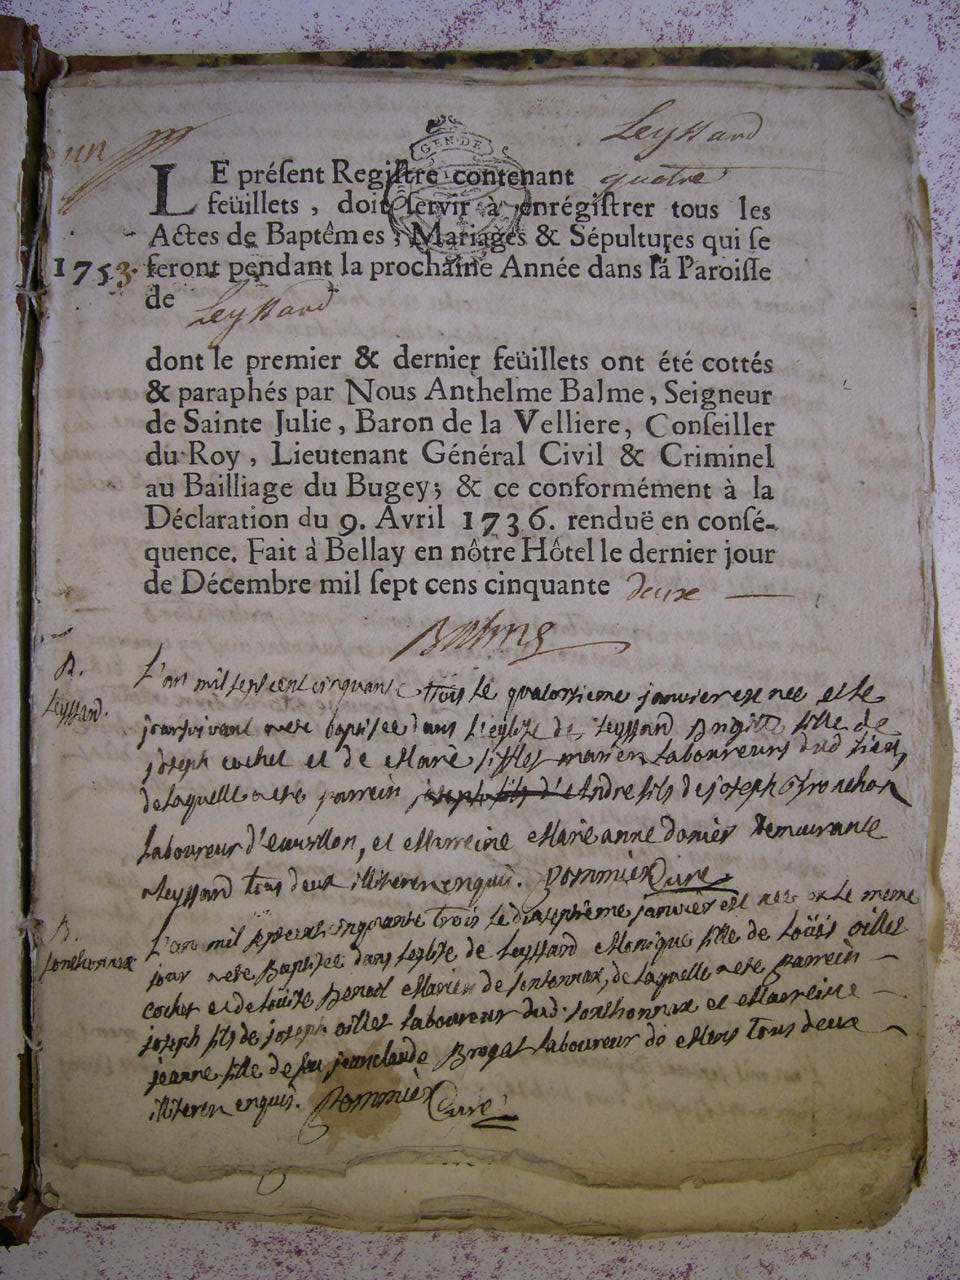 un
Leyssard
GEN·DE
LE préſent Regiſtre contenant quatre
feüillets, doit ſervir à enrégiſtrer tous les
Actes de Baptêmes, Mariages & Sépultures qui ſe
1753. ſeront pendant la prochaine Année dans la Paroiſſe
de Leyssard
dont le premier & dernier feüillets ont été cottés
& paraphés par Nous Anthelme Balme, Seigneur
de Sainte Julie, Baron de la Velliere, Conſeiller
du Roy, Lieutenant Général Civil & Criminel
au Bailliage du Bugey; & ce conformément à la
Déclaration du 9. Avril 1736. renduë en conſé-
quence. Fait à Bellay en nôtre Hôtel le dernier jour
de Décembre mil ſept cens cinquante deuxe
Balme
B. L'an mil sept cent cinquante trois le quatorsieme janvier est née et le
Leyssard. jour suivant a ete baptisée dans l'eglise de Leyssard Brigitte fille de
joseph cochet et de Marie mariers Laboureurs dud lieu,
de laquelle a ete parrein joseph fils d' Andre fils de joseph
Laboureur d' et Marreine Marie anne demeurante
a leyssard tous deux illiteres enquis. pommier Cure
B. L'an mil sept cent cinquante trois le dixseptieme janvier est nee et le meme
Sonthonnax jour a ete Baptisee dans l'eglise de Leyssard Monique fille de Loüis oillet
cochet et de Loüise Benoit Mariers de sontonnax, de laquelle a ete parrein
joseph fils de joseph oillet Laboureur dud. sonthonnax et Marreine
jeanne fille de feu jeanclaude Brogat Laboureur de tous deux
illiteres enquis. pommier Cure